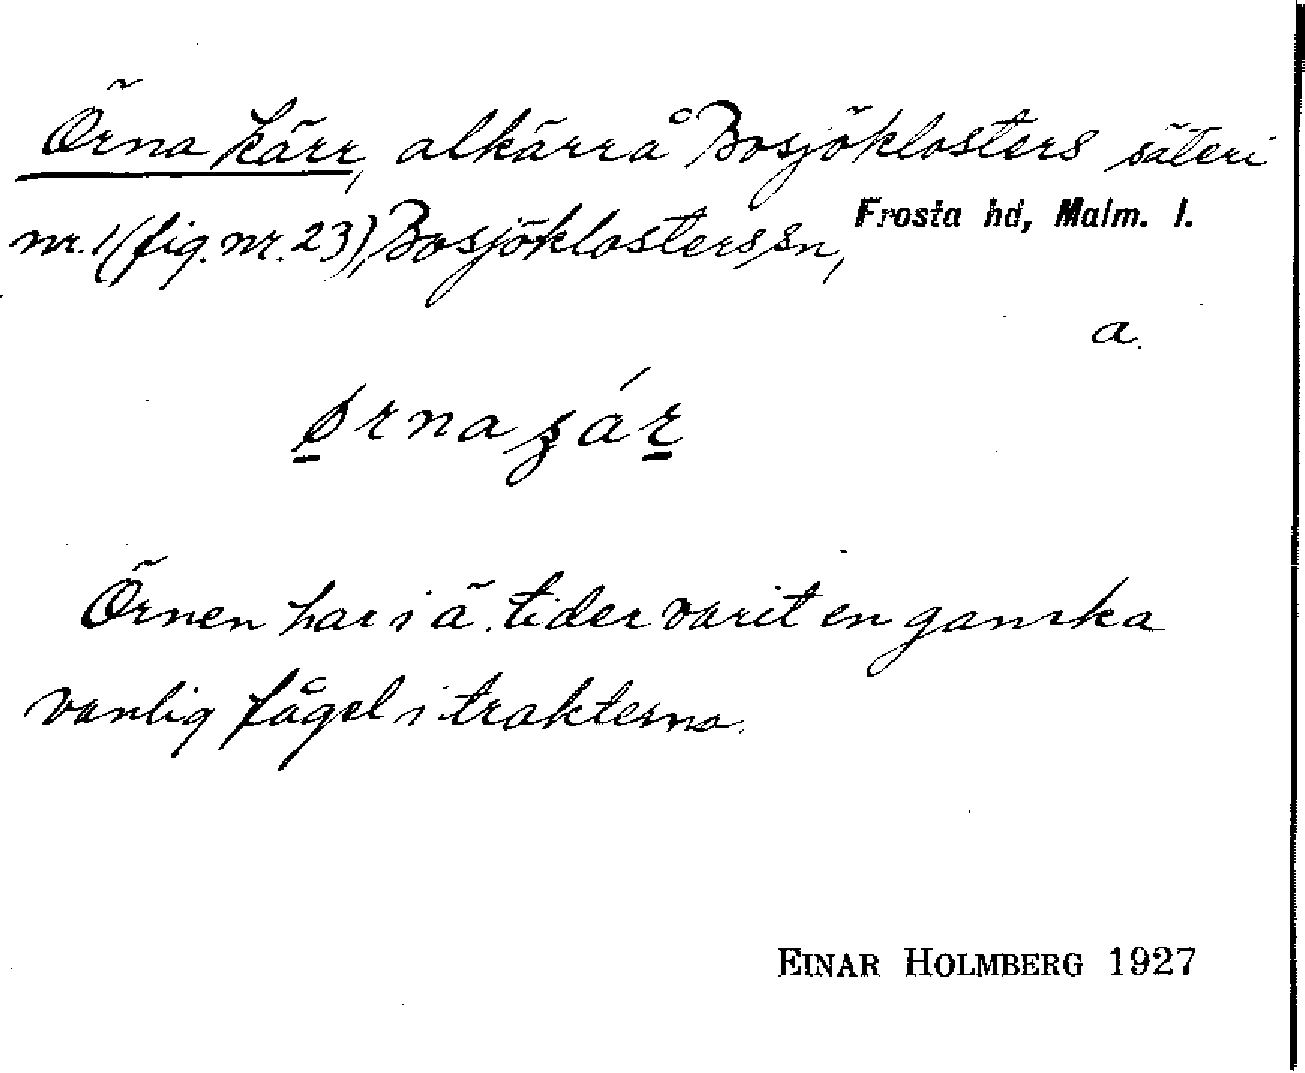 Örna kärr, alkärr å Bosjöklosters säteri
nr. 1 (fig. nr. 23), Bosjöklosters sn, Frosta hd, Malm. l.
a.
Örnen har i ä. tider varit en ganska
vanlig fågel i trakterna.
EINAR HOLMBERG 1927